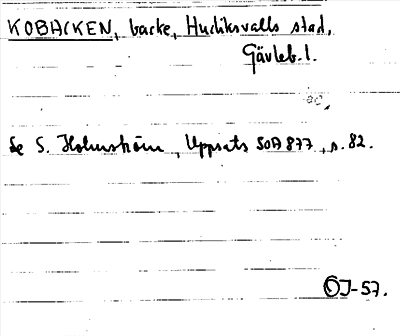 KOBACKEN, backe, Hudiksvalls stad,
Gävleb. l.
Se S. Holmström, Uppsats SOA 877, s. 82.
ÖJ-57.